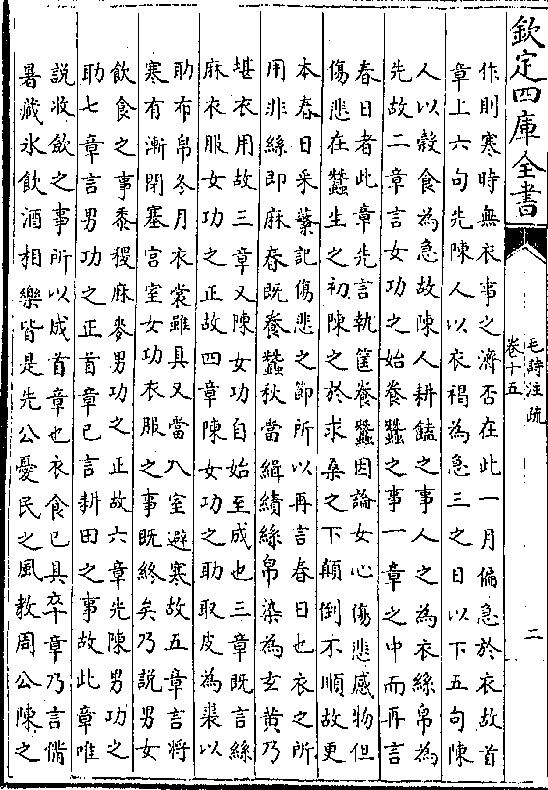 欽定四庫全書
毛詩注疏
卷十五
二
作則寒時無衣事之濟否在此一月偏急於衣故首
章上六句先陳人以衣褐為急三之日以下五句陳
人以穀食為急故陳人耕饁之事人之為衣絲帛為
先故二章言女功之始養蠶之事一章之中而再言
春日者此章先言執筐養蠶因論女心傷悲感物但
傷悲在蠶生之初陳之於求桑之下顛倒不順故更
本春日采蘩記傷悲之節所以再言春日也衣之所
用非絲即麻春既養蠶秋當緝績絲帛染為玄黃乃
堪衣用故三章又陳女功自始至成也三章既言絲
麻衣服女功之正故四章陳女功之助取皮為裘以
助布帛冬月衣裳雖具又當入室避寒故五章言將
寒有漸閉塞宮室女功衣服之事既終矣乃說男女
飲食之事黍稷麻麥男功之正故六章先陳男功之
助七章言男功之正首章已言耕田之事故此章唯
說收斂之事所以成首章也衣食已具卒章乃言備
暑藏氷飲酒相樂皆是先公憂民之風教周公陳之